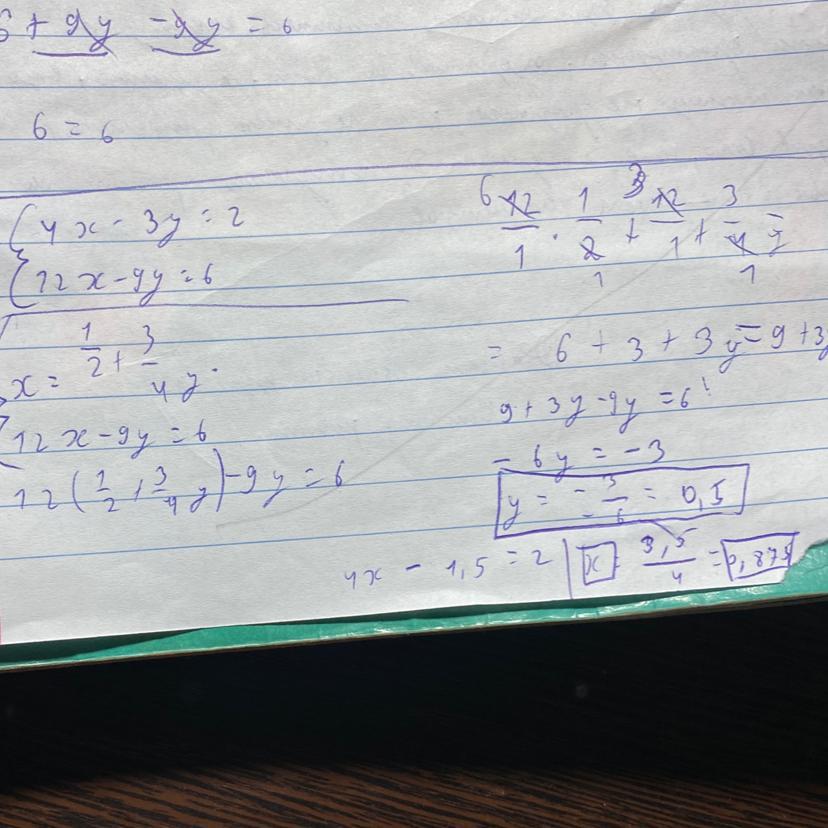 6 + 9y - 9y = 6
6 = 6
{ 4x - 3y = 2
{ 12x - 9y = 6
x = 1/2 + 3/4 y.
12x - 9y = 6
12(1/2 + 3/4 y) - 9y = 6
6 12/1 · 1/2 1 + 3 12/1 + 3/4 1 y
= 6 + 3 + 3y = 9 + 3y
9 + 3y - 9y = 6!
- 6y = - 3
y = -3/-6 = 0,5
4x - 1,5 = 2 | x = 3,5/4 = 0,875